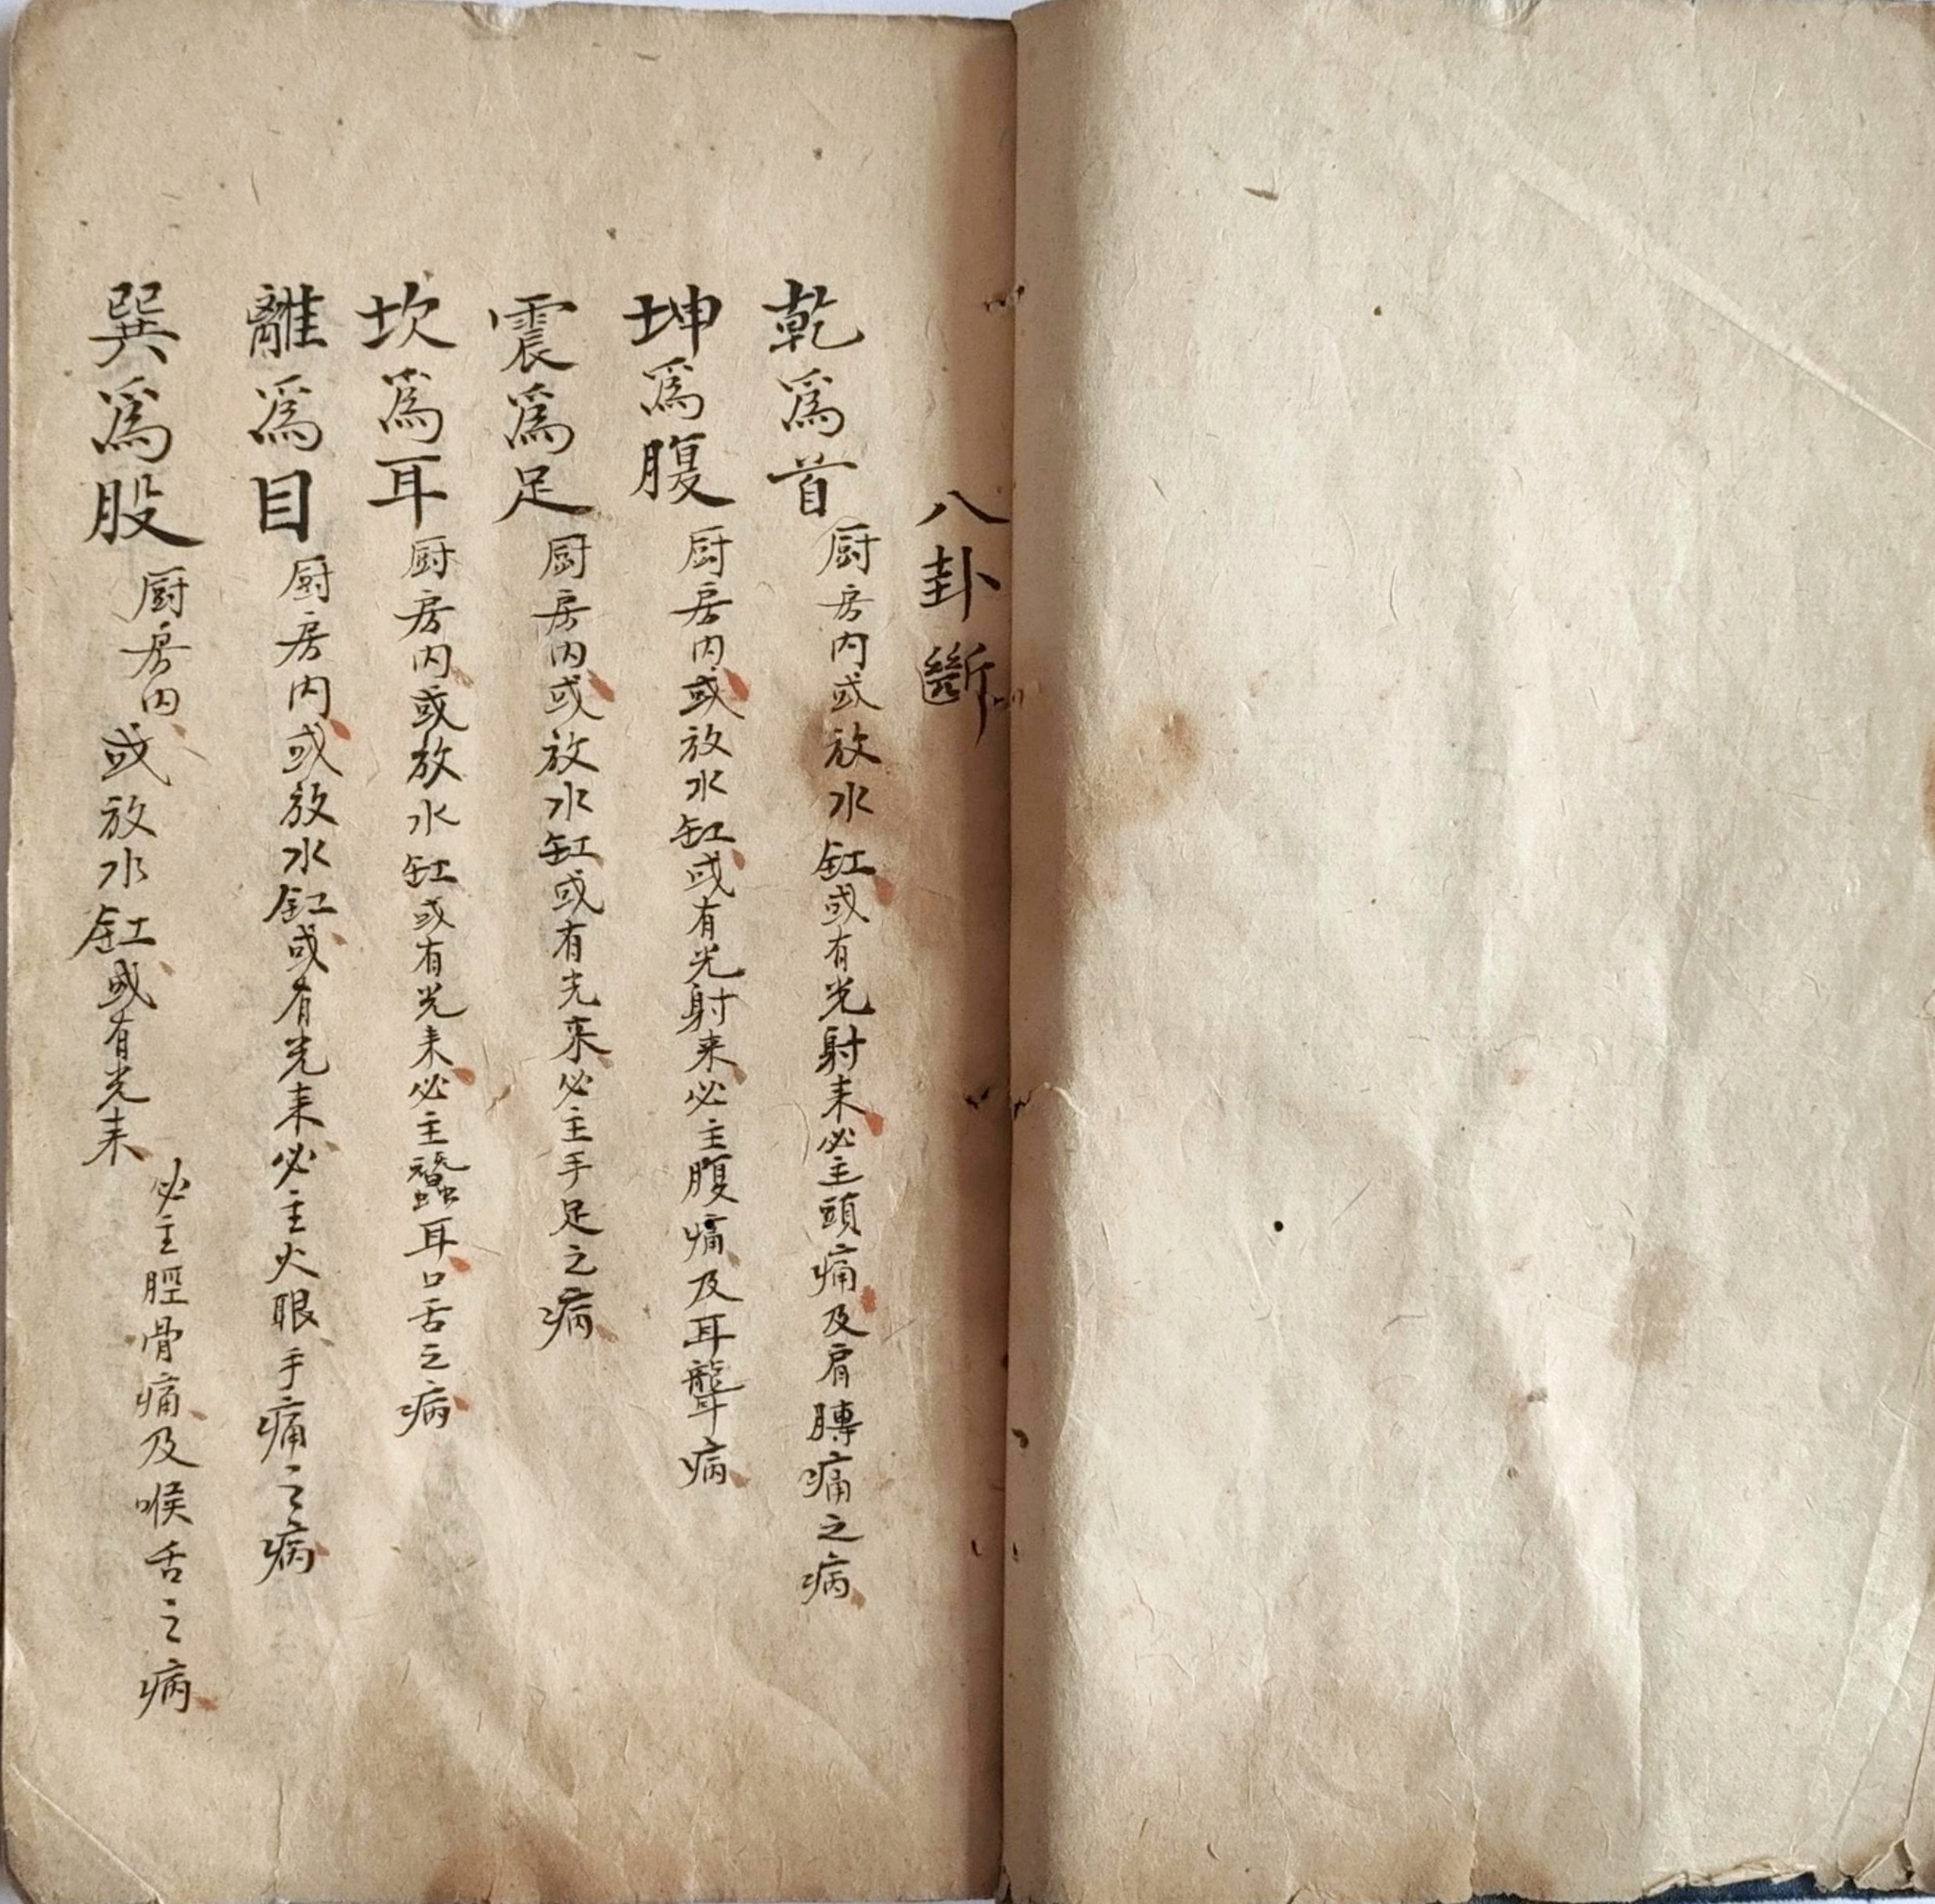 八卦斷
乾爲首厨房内或放水缸或有光射来必主頭痛及肩膊痛之病
坤爲腹厨房内或放水缸或有光射来必主腹痛及耳聾病
震爲足厨房内或放水缸或有光来必主手足之病
坎爲耳厨房内或放水缸或有光来必主蠶耳口舌之病
離爲目厨房内或放水缸或有光来必主火眼手痛之病
巽爲股厨房内或放水缸或有光来必主脛骨痛及喉舌之病